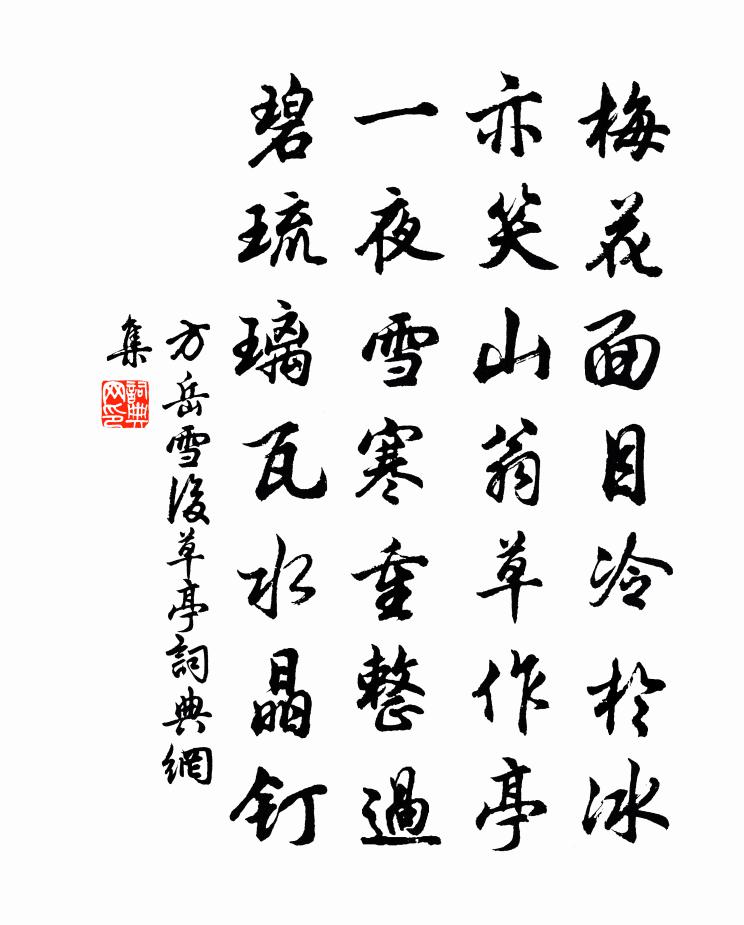 梅花面目冷於冰
亦笑山翁草作亭
一夜雪寒重整過
碧琉璃瓦水晶釘
方岳雪後草亭詞典網
集
詞典
网印